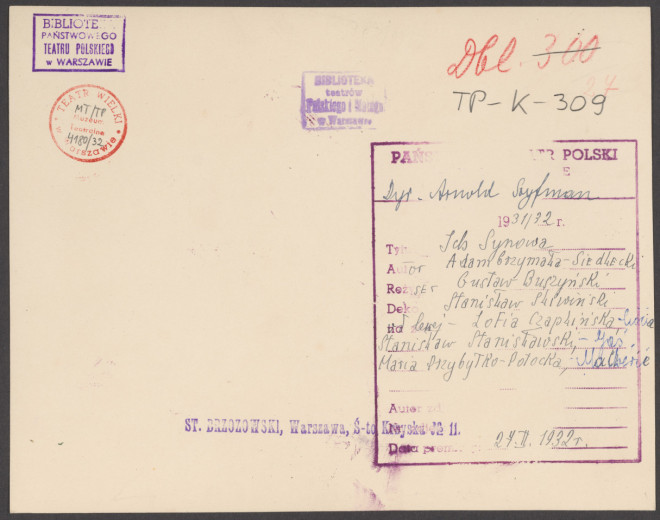 BIBLIOTEKA
PAŃSTWOWEGO
TEATRU POLSKIEGO
w WARSZAWIE
TEATR WIELKI
MT/TP
Muzeum
Teatralne
4180/32
w Warszawie
BIBLIOTEKA
teatrów
Polskiego i Małego
w Warszawie
Dbl. 300
27
TP-K-309
POLSKI
Dyr. Arnold Szyfman
1931/32 r.
Ich Synowa
Autor Adam Grzymała-Siedlecki
Reżyser Gustaw Buszyński
Deko Stanisław Śliwiński
lewej - Zofia Czaplińska -
Stanisław Stanisławski, -
Maria Przybyłko-Potocka, -
Autor
ST. BRZOZOWSKI, Warszawa, Ś-to Krzyska № 11.
Data 27.II.1932 r.